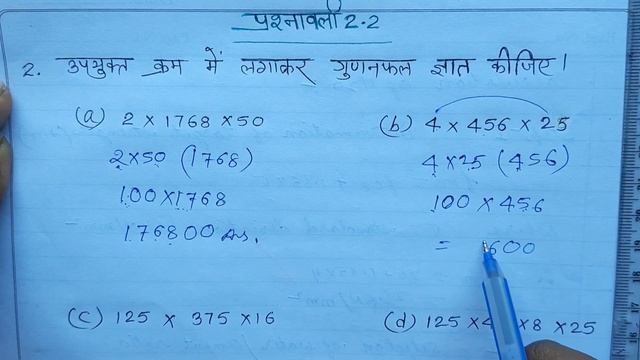 प्रश्नावली 2.2
2. उपयुक्त क्रम में लगाकर गुणनफल ज्ञात कीजिए।
(a) 2 × 1768 × 50
2×50 (1768)
100×1768
176800 Ans.
(b) 4 × 456 × 25
4×25 (456)
100 × 456
= 600
(c) 125 × 375 ×16
(d) 125 ×4 ×8 ×25